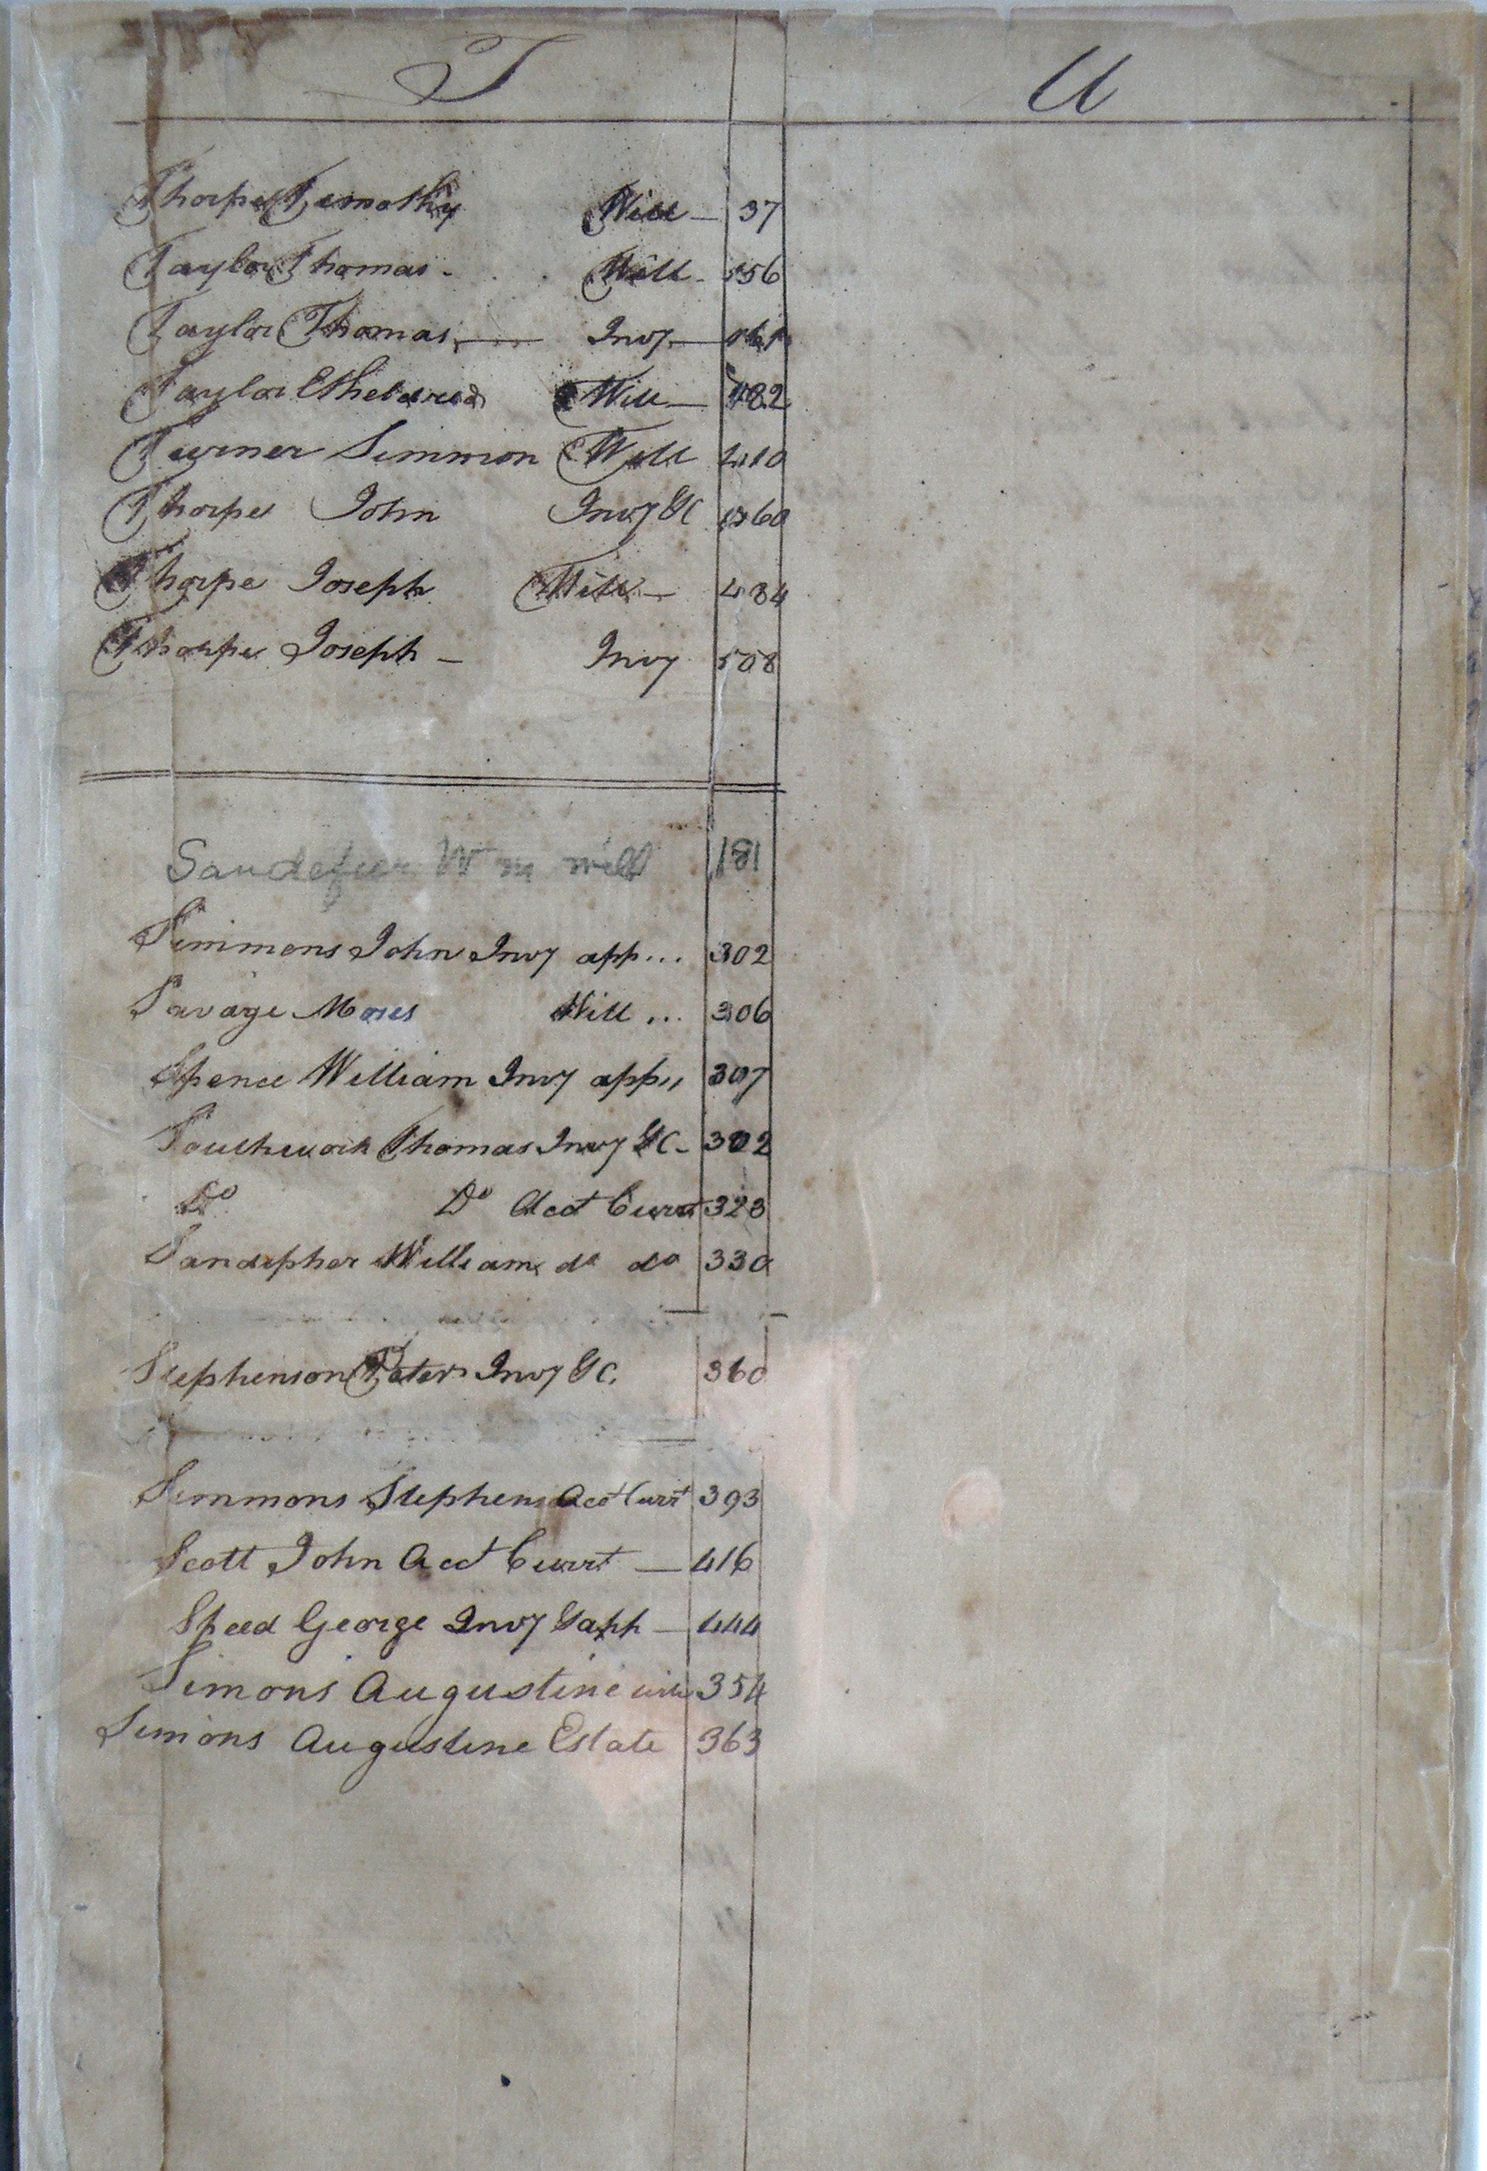 T
U
Thorpe Timothy Will — 37
Taylor Thomas - Will - 156
Taylor Thomas — Invy — 161
Taylor Etheldred Will — 182
Turner Simmon Will 410
Thorpe John Invy &C 460
Thorpe Joseph Will — 484
Thorpe Joseph — Invy 508
Sandefur Wm will 181
Simmons John Invy app... 302
Savage Moses Will ... 306
Spence William Invy app,, 307
Southwork Thomas Invy &C - 302
Do Do Acct Currt 323
Sandepher William do do 330
Stephenson Peter Invy &C. 360
Simmons Stephen Acct Currt 393
Scott John Acct Currt — 416
Speed George Invy & app — 444
Simons Augustine will 354
Simons Augustine Estate 363